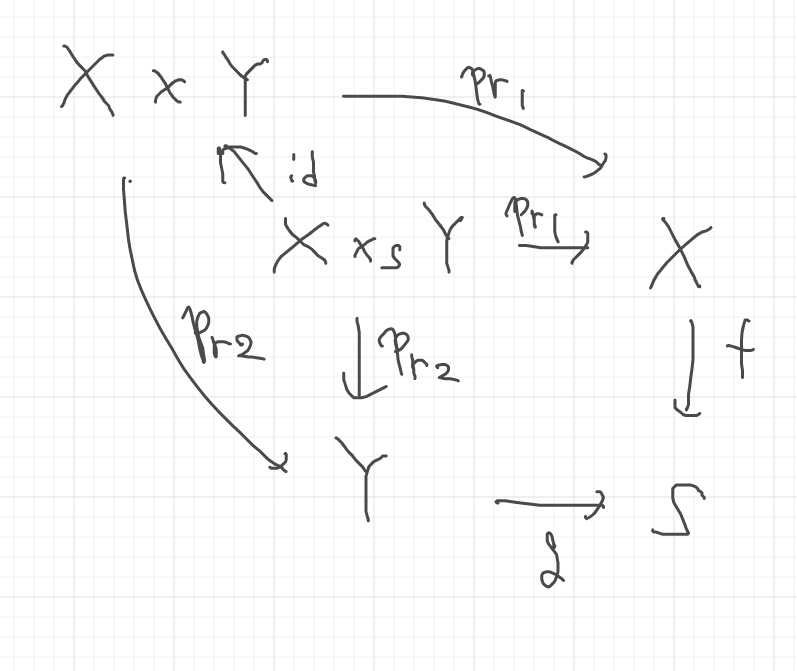 X x Y
pr1
id
X xS Y
pr1
X
pr2
pr2
f
Y
S
g